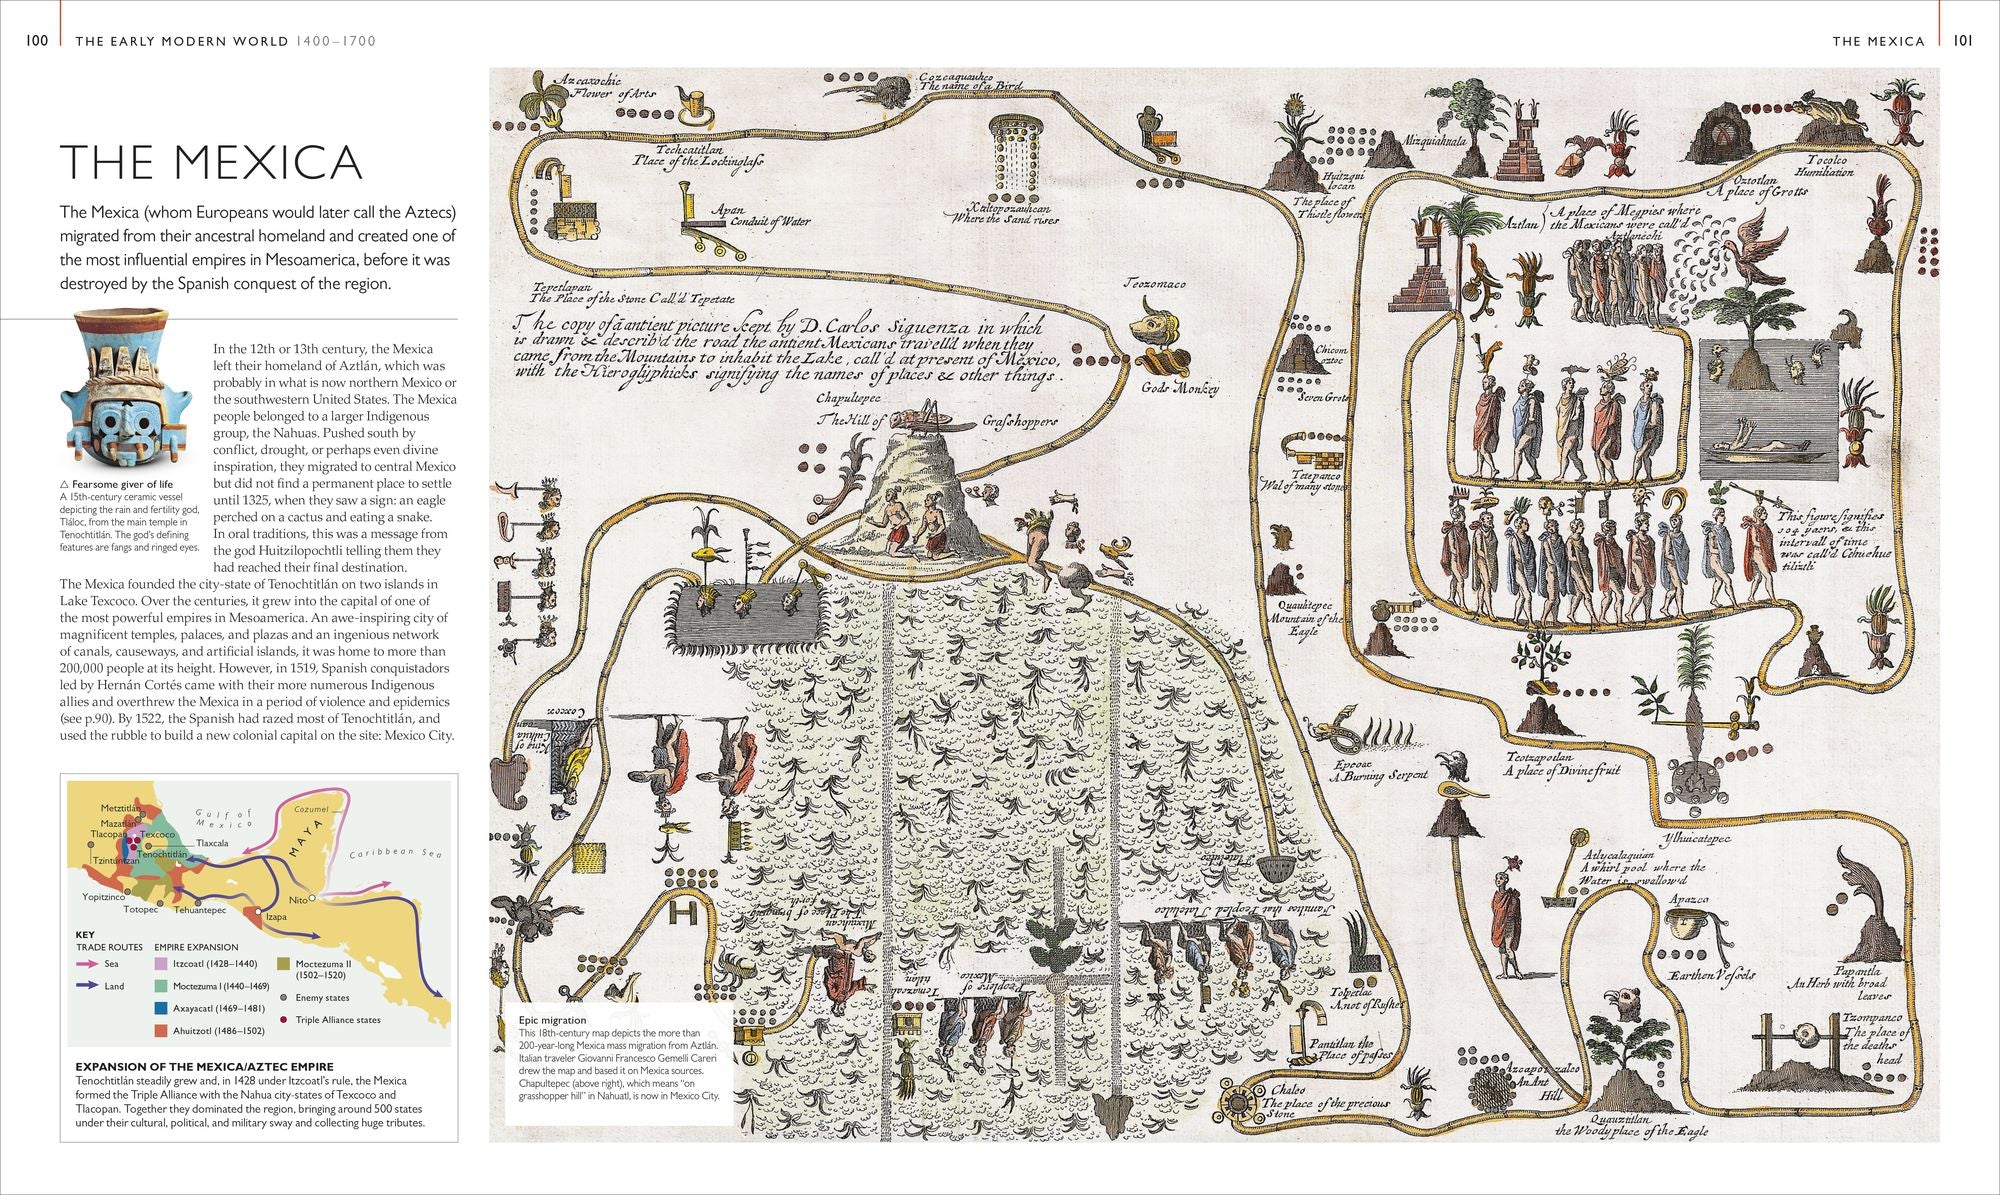 100
THE EARLY MODERN WORLD 1400–1700
THE MEXICA
101
THE MEXICA
The Mexica (whom Europeans would later call the Aztecs)
migrated from their ancestral homeland and created one of
the most influential empires in Mesoamerica, before it was
destroyed by the Spanish conquest of the region.
In the 12th or 13th century, the Mexica
left their homeland of Aztlán, which was
probably in what is now northern Mexico or
the southwestern United States. The Mexica
people belonged to a larger Indigenous
group, the Nahuas. Pushed south by
conflict, drought, or perhaps even divine
inspiration, they migrated to central Mexico
but did not find a permanent place to settle
until 1325, when they saw a sign: an eagle
perched on a cactus and eating a snake.
In oral traditions, this was a message from
the god Huitzilopochtli telling them they
had reached their final destination.
The Mexica founded the city-state of Tenochtitlán on two islands in
Lake Texcoco. Over the centuries, it grew into the capital of one of
the most powerful empires in Mesoamerica. An awe-inspiring city of
magnificent temples, palaces, and plazas and an ingenious network
of canals, causeways, and artificial islands, it was home to more than
200,000 people at its height. However, in 1519, Spanish conquistadors
led by Hernán Cortés came with their more numerous Indigenous
allies and overthrew the Mexica in a period of violence and epidemics
(see p.90). By 1522, the Spanish had razed most of Tenochtitlán, and
used the rubble to build a new colonial capital on the site: Mexico City.
△ Fearsome giver of life
A 15th-century ceramic vessel
depicting the rain and fertility god,
Tláloc, from the main temple in
Tenochtitlán. The god's defining
features are fangs and ringed eyes.
Metztitlán
Mazatlán
Tlacopan
Texcoco
Tlaxcala
Tenochtitlán
Tzintúntzan
Yopitzinco
Totopec
Tehuantepec
Izapa
Nito
Gulf of
Mexico
Cozumel
MAYA
Caribbean Sea
KEY
TRADE ROUTES
Sea
Land
EMPIRE EXPANSION
Itzcoatl (1428–1440)
Moctezuma I (1440–1469)
Axayacatl (1469–1481)
Ahuitzotl (1486–1502)
Moctezuma II
(1502–1520)
Enemy states
Triple Alliance states
EXPANSION OF THE MEXICA/AZTEC EMPIRE
Tenochtitlán steadily grew and, in 1428 under Itzcoatl's rule, the Mexica
formed the Triple Alliance with the Nahua city-states of Texcoco and
Tlacopan. Together they dominated the region, bringing around 500 states
under their cultural, political, and military sway and collecting huge tributes.
Azcaxochic
Flower of Arts
Cozcaquauhco
The name of a Bird
Techcatitlan
Place of the Lockinglass
Apan
Conduit of Water
Xaltopozauhcan
Where the Sand rises
Tepetlapan
The Place of the Stone Call'd Tepetate
The copy of a antient picture kept by D. Carlos Siguenza in which
is drawn & describ'd the road the antient Mexicans travell'd when they
came from the Mountains to inhabit the Lake, call'd at present of Mexico,
with the Hieroglyphicks signifying the names of places & other things.
Teozomaco
Gods Monkey
Chapultepec
The Hill of Grasshoppers
Huitzqui
locan
The place of
Thistle flowers
Mizquiahuala
Oztotlan
A place of Grotts
Tocolco
Humiliation
Aztlan
A place of Megpies where
the Mexicans were call'd
Aztlanechi
Chicom
oztoc
Seven Grots
Tetepanco
Wal of many stones
This figure signifies
104 years, & this
intervall of time
was call'd Cehuehue
tiliztli
Quauhtepec
Mountain of the
Eagle
Epcoac
A Burning Serpent
Teotzapotlan
A place of Divine fruit
Ylhuicatepec
Atlycalaquian
A whirl pool where the
Water is swallow'd
Apazco
Earthen Vessels
Papantla
An Herb with broad
leaves
Tzompanco
The place of
the deaths
head
Quauztitlan
the Woody place of the Eagle
Azcapotzalco
An Ant
Hill
Tolpetlac
A not of Rushes
Pantitlan the
Place of passes
Chalco
The place of the precious
Stone
Coxcox
King of
Culhua
can
Mixiuhcan
The Place of bringing
forth
Peoplers of Mexico
Families that Peopled Tlatelulco
Epic migration
This 18th-century map depicts the more than
200-year-long Mexica mass migration from Aztlán.
Italian traveler Giovanni Francesco Gemelli Careri
drew the map and based it on Mexica sources.
Chapultepec (above right), which means "on
grasshopper hill" in Nahuatl, is now in Mexico City.